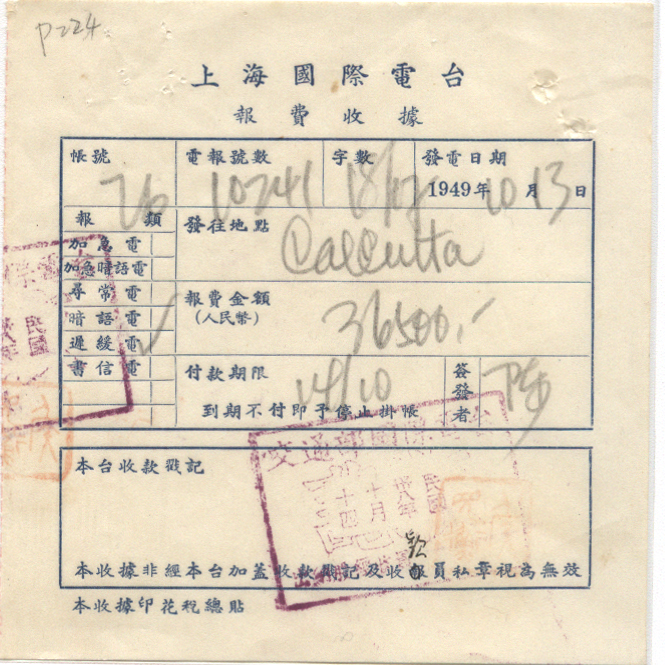 P=24
上海國際電台
報費收據
帳號 電報號數 字數 發電日期
76 10241 18/02 1949年10月13日
報類 發往地點
加急電 Calcutta
加急暗語電
尋常電 報費金額
暗語電 (人民幣) 36500.-
遲緩電
書信電 付款期限 14/10 簽發者 陳
到期不付即予停止掛帳
交通部國際電台
民國
卅八年
十月
十四
本台收款戳記
本收據非經本台加蓋收款戳記及收款員私章視為無效
本收據印花稅總貼